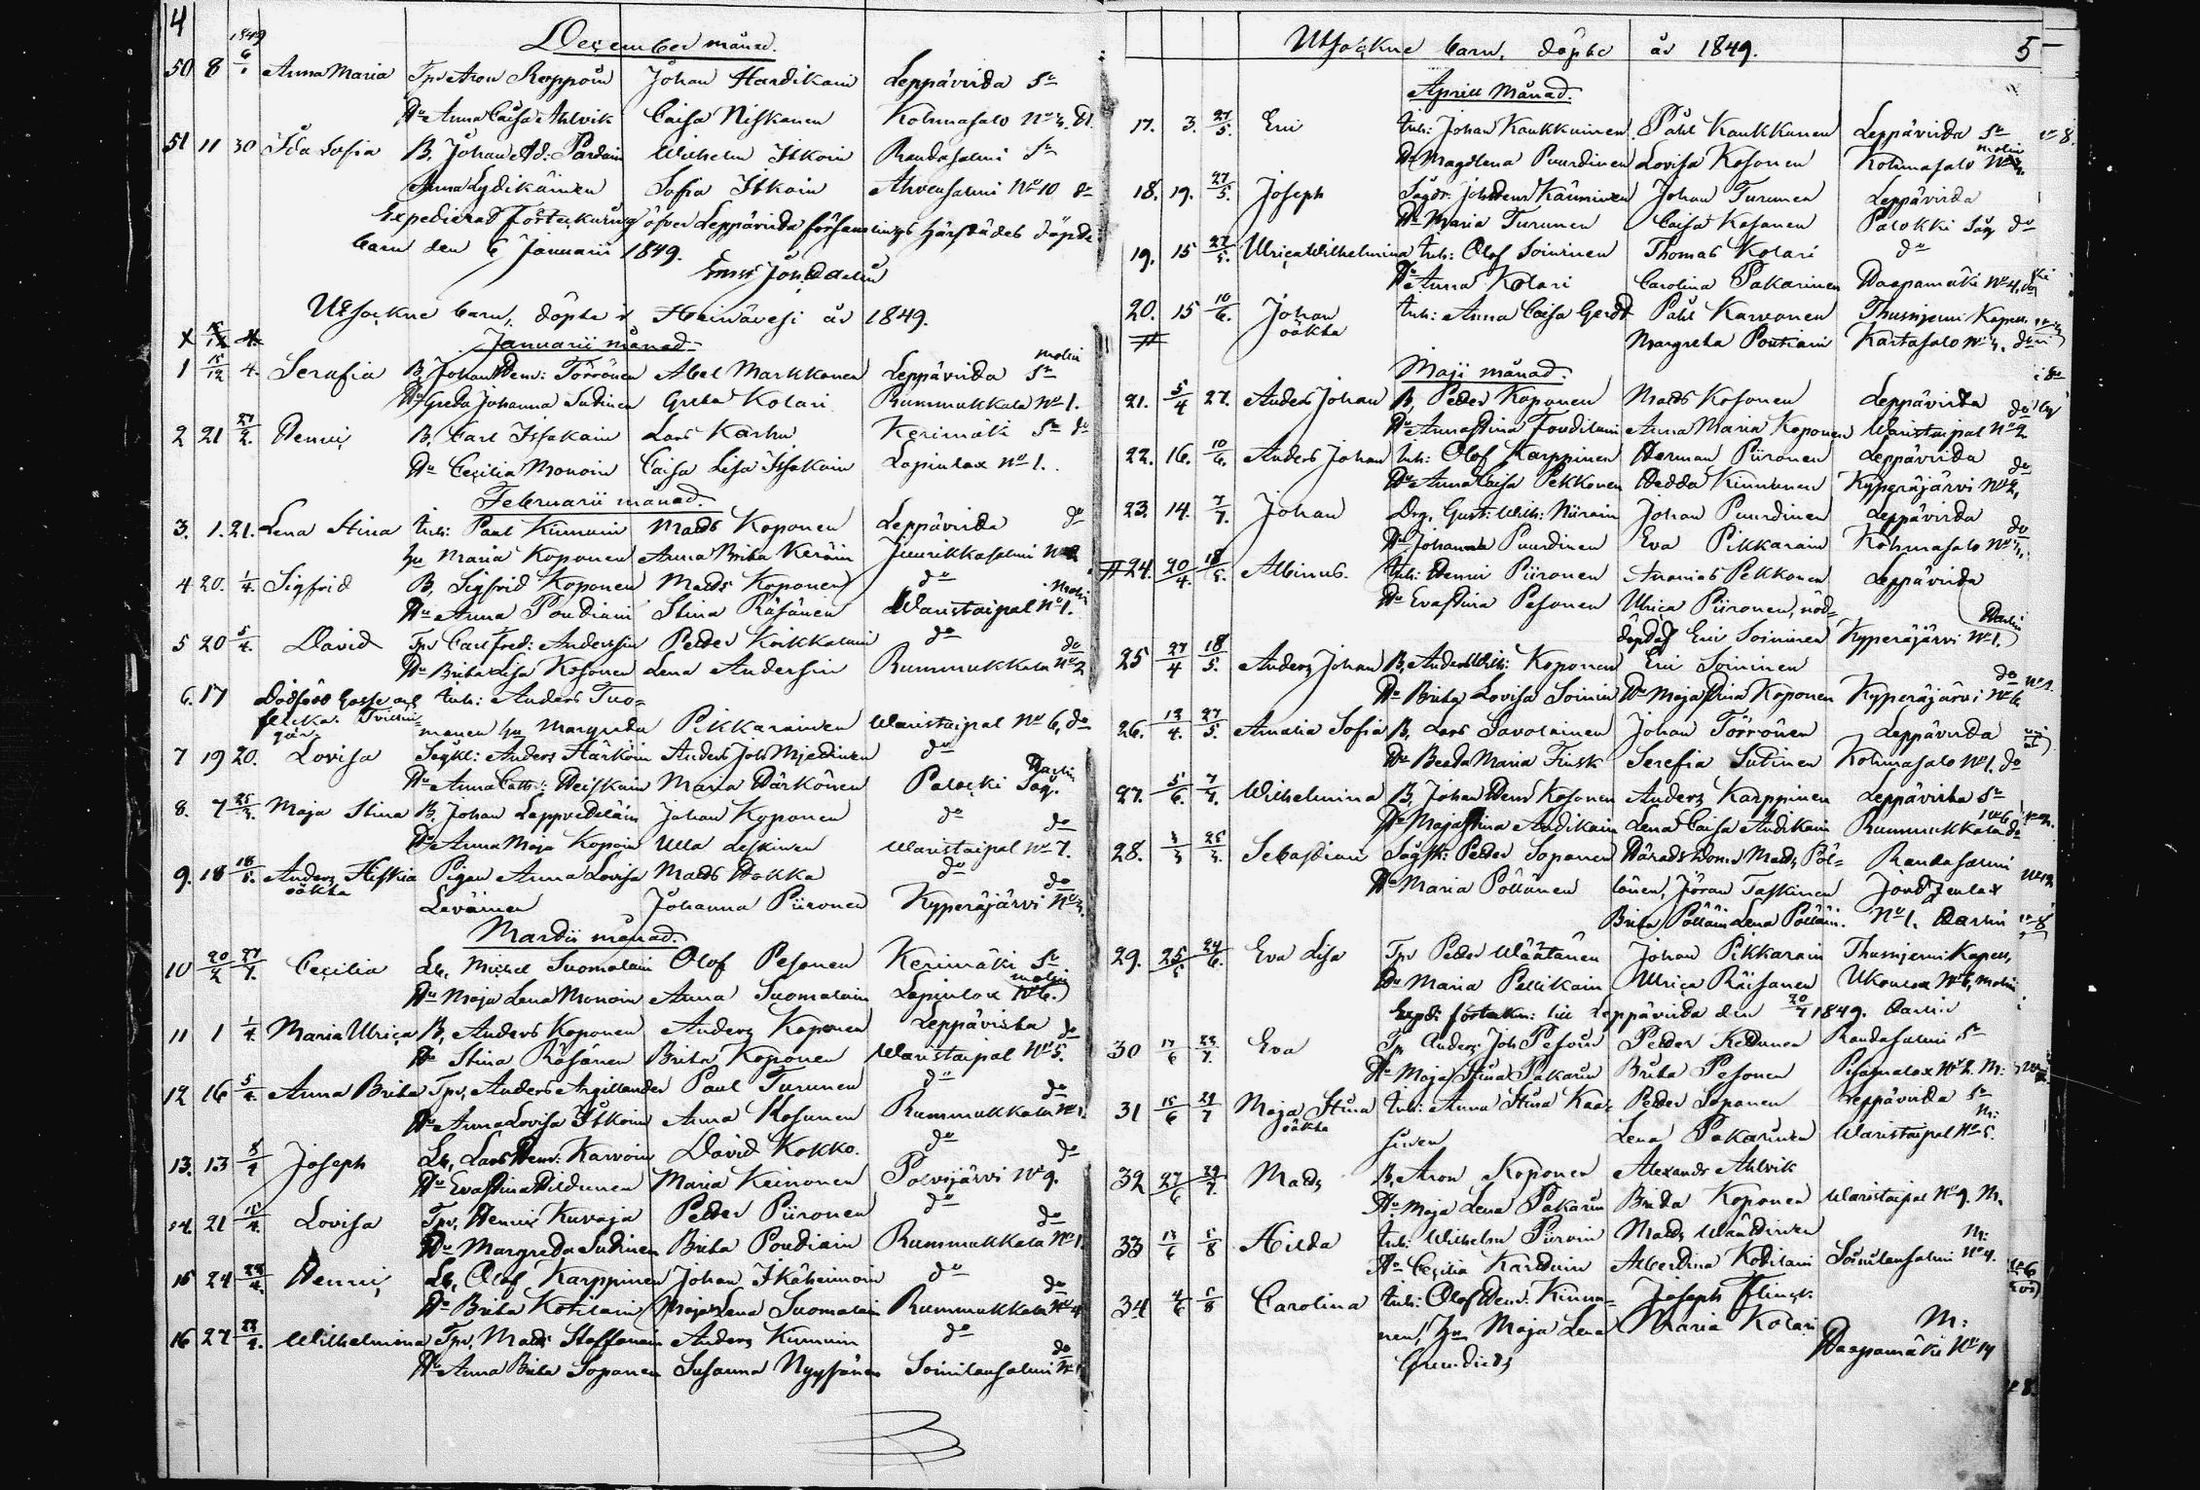 4
1849
December månad.
50 8 6/1 Anna Maria Tpr Aron Roppoin Johan Hardikain Leppävirda Sn
Hu Anna Caisa Ahlvik Caisa Niskanen Kohmasalo No 3. D.
51 11 30 Ida Sofia B. Johan Ad: Pardain Wilhelm Itkoin Randasalmi Sn
Anna Lydikäinen Sofia Itkoin Ahvensalmi No 10 do
Expedierad Förteckning öfver Leppävirda församlings härstädes döpde
barn den 6 Januarii 1849.
Joh: Dahlin
Utsockne barn, döpte i Heinävesi år 1849.
Januarii månad.
1 15/12 4. Serafia B. Johan Henr: Törrönen Abel Markkanen Leppävirda Sn Molin
Hu Greta Johanna Sutinen Greta Kolari Rummukkala No 1.
2 21 27/2. Henric B. Carl Issakain Lars Karhu Kerimäki Sn do
Hu Cecilia Monoin Caisa Lisa Issakain Lapinlax No 1.
Februarii månad.
3. 1. 21. Lena Stina Inh: Paul Kinnuin Mads Koponen Leppävirda do
hu Maria Koponen Anna Brita Keräin Juurikkasalmi No 2
4 20. 1/4. Sigfrid B. Sigfrid Koponen Mads Koponen do Molin
Hu Anna Poutiain Stina Räsänen Waristaipal No 1.
5 20 5/4. David Tpr Carl Fred: Anderssin Peder Koikkalain do do
Hu Brita Lisa Kosonen Lena Anderssin Rummukkala No 2
6. 17 Dödfödd Gosse och Inh: Anders Tuo-
flicka. Tvillin- manen hu Margreta Pikkarainen Waristaipal No 6, do
gar.
7 19 20. Lovisa Sågkl: Anders Härköin Anders Joh Mjedinen do
Hu Anna Cath: Heiskain Maria Härkönen Palocki Såg. Dahlin
8. 7 25/3. Maja Stina B. Johan Leppvedeläin Johan Koponen do do
Hu Anna Maja Kopoin Ulla Leskinen Waristaipal No 7.
9. 18 18/5. Anders Kiskia Pigan Anna Lovisa Mads Hokka do do
oäkta Leväinen Johanna Piironen Kyperäjärvi No 3.
Martii månad.
10 20/2 27/7. Cecilia Lb. Michel Suomalain Olof Pesonen Kerimäki Sn
Hu Maja Lena Monoin Anna Suomalain Lapinlax No 6. Molin
11 1 1/4. Maria Ulrica B, Anders Koponen Anders Koponen Leppävirta do
Hu Stina Räsänen Brita Koponen Waristaipal No 5.
12 16 5/4. Anna Brita Tpr, Anders Argillander Paul Turunen do do
Hu Anna Lovisa Itkoin Anna Kosunen Rummukkala No 1.
13. 13 5/4 Joseph Lb, Lars Henr: Karvoin David Kokko. do do
Hu Eva Stina Hildunen Maria Keinonen Polvijärvi No 9.
14. 21 15/4. Lovisa Tpr, Henric Kuvaja Peder Piironen do do
Hu Margreta Sutinen Brita Poudiain Rummukkala No 1.
15 24 22/4. Henric Lb, Olof Karppinen Johan Ikäheimoin do do
Hu Brita Kotilain Maja Lena Suomalain Rummukkala No 4
16 27 22/4. Wilhelmina Tpr, Mads Stoffanain Anders Kinnuin do do
Hu Anna Brita Soponen Susanna Nyyssönen Soinilansalmi No 1
5
Utsockne barn, döpte år 1849.
Aprill Månad.
17. 3. 27/5. Eric Inh: Johan Kaukkainen Påhl Kaukkanen Leppävirda Sn
Hu Magdlena Puurdinen Lovisa Kosonen Kohmasalo No 3. Molin
18. 19. 27/5. Joseph Sågdr. Joh Henr Käninen Johan Turunen Leppävirda
Hu Maria Turunen Caisa Kosonen Palokki Såg do
19. 15 27/5. Ulrica Wilhelmina Inh: Olof Soininen Thomas Kolari do
Hu Anna Kolari Carolina Pakarinen Haapamäki No 4. do
20. 15 10/6. Johan Inh: Anna Caisa Gerdt Påhl Karvonen Thusnjemi Kapell
oäkta Margreta Poutiain Kartasalo No 3. do
Maji månad.
21. 5/4 27. Anders Johan B, Peder Koponen Mads Kosonen Leppävirda do
Hu Anna Stina Foudilain Anna Maria Koponen Waristaipal No 2
22. 16. 10/6. Anders Johan Inh: Olof Karppinen Herman Piironen Leppävirda do
Hu Anna Caisa Pekkonen Hedda Kinnunen Kyperäjärvi No 2,
23. 14. 7/7. Johan Drg, Gust: Wilh: Niirain Johan Puurdinen Leppävirda do
Hu Johanna Puurdinen Eva Pikkarain Kohmasalo No 3.
24. 20/4. 18/5. Albinus. Inh: Henric Piironen Ananias Pekkonen Leppävirda
Hu Eva Stina Pesonen Ulrica Piironen, nöd- Dahlin
döpt af Eric Soininen Kyperäjärvi No 1.
25 27/4 18/5. Anders Johan B, Anders Wilh: Koponen Eric Soininen do
Hu Brita Lovisa Soinin Hu Maja Stina Koponen Kyperäjärvi No 6
26. 12/4. 27/5. Amalia Sofia B, Lars Savolainen Johan Törrönen Leppävirda
Hu Beata Maria Finsk Serefia Sutinen Kohmasalo No 1. do
27. 5/6. 7/7. Wilhelmina B, Johan Henr Kosonen Anders Karppinen Leppävirta Sn
Hu Maja Stina Audikain Lena Caisa Audikain Rummukkala do
28. 3/3 25/3. Sebastian Sågsk: Peder Soponen Häradsdom. Mads Pöl- Randasalmi
Hu Maria Pöllänen länen, Jöran Taskinen
Brita Pölläin Lena Pölläin. No 1. Dahlin
29. 25/5 24/6. Eva Lisa Tpr Peder Wäätänen Johan Pikkarain Thusnjemi Kapell,
Hu Maria Pellikain Ulrica Räisanen Ukonlax No 6, Molin
Exp: förtekn: till Leppävirda den 20/7 1849. Dahlin
30 17/6 22/7. Eva Tpr Anders Joh Pesoin Peder Kettunen Randasalmi Sn
Hu Maja Stina Pakarin Brita Pesonen No 2. M:
31 15/6 29/7 Maja Stina Inh: Anna Stina Kaa- Peder Soponen Leppävirda Sn
oäkta sinen Lena Pakarinen Waristaipal No 5. M:
32 27/6 29/7. Mads B, Aron Koponen Alexandr Ahlvik
Hu Maja Lena Pakarin Beada Koponen Waristaipal No 9. M.
33 13/6 5/8 Hilda Inh: Wilhelm Purvin Mads Wäätinen M:
Hu Cecilia Karduin Albertina Kotilain Soinilansalmi No 4.
34 4/6 5/8 Carolina Inh: Olof Henr: Kinnu- Joseph Flinck M:
nen, Hu Maja Lena Maria Kolari Haapamäki No 14